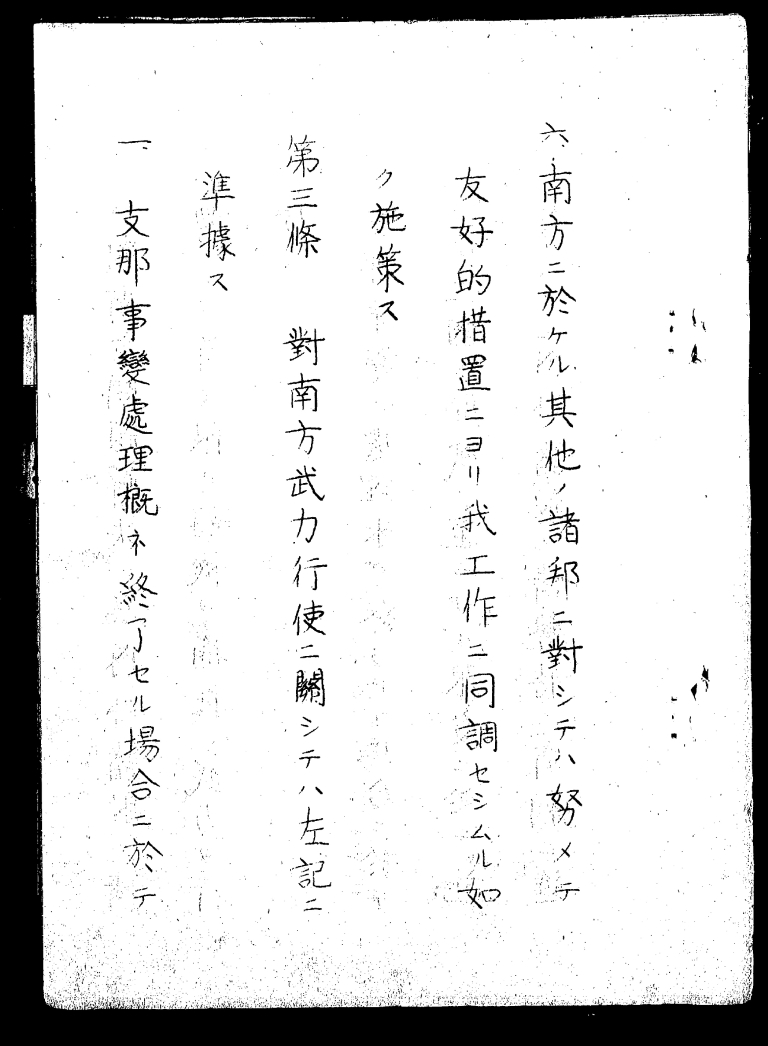 六、南方ニ於ケル其他ノ諸邦ニ對シテハ努メテ
友好的措置ニヨリ我工作ニ同調セシムル如
ク施策ス
第三條　對南方武力行使ニ關シテハ左記ニ
準據ス
一、支那事變處理概ネ終了セル場合ニ於テ